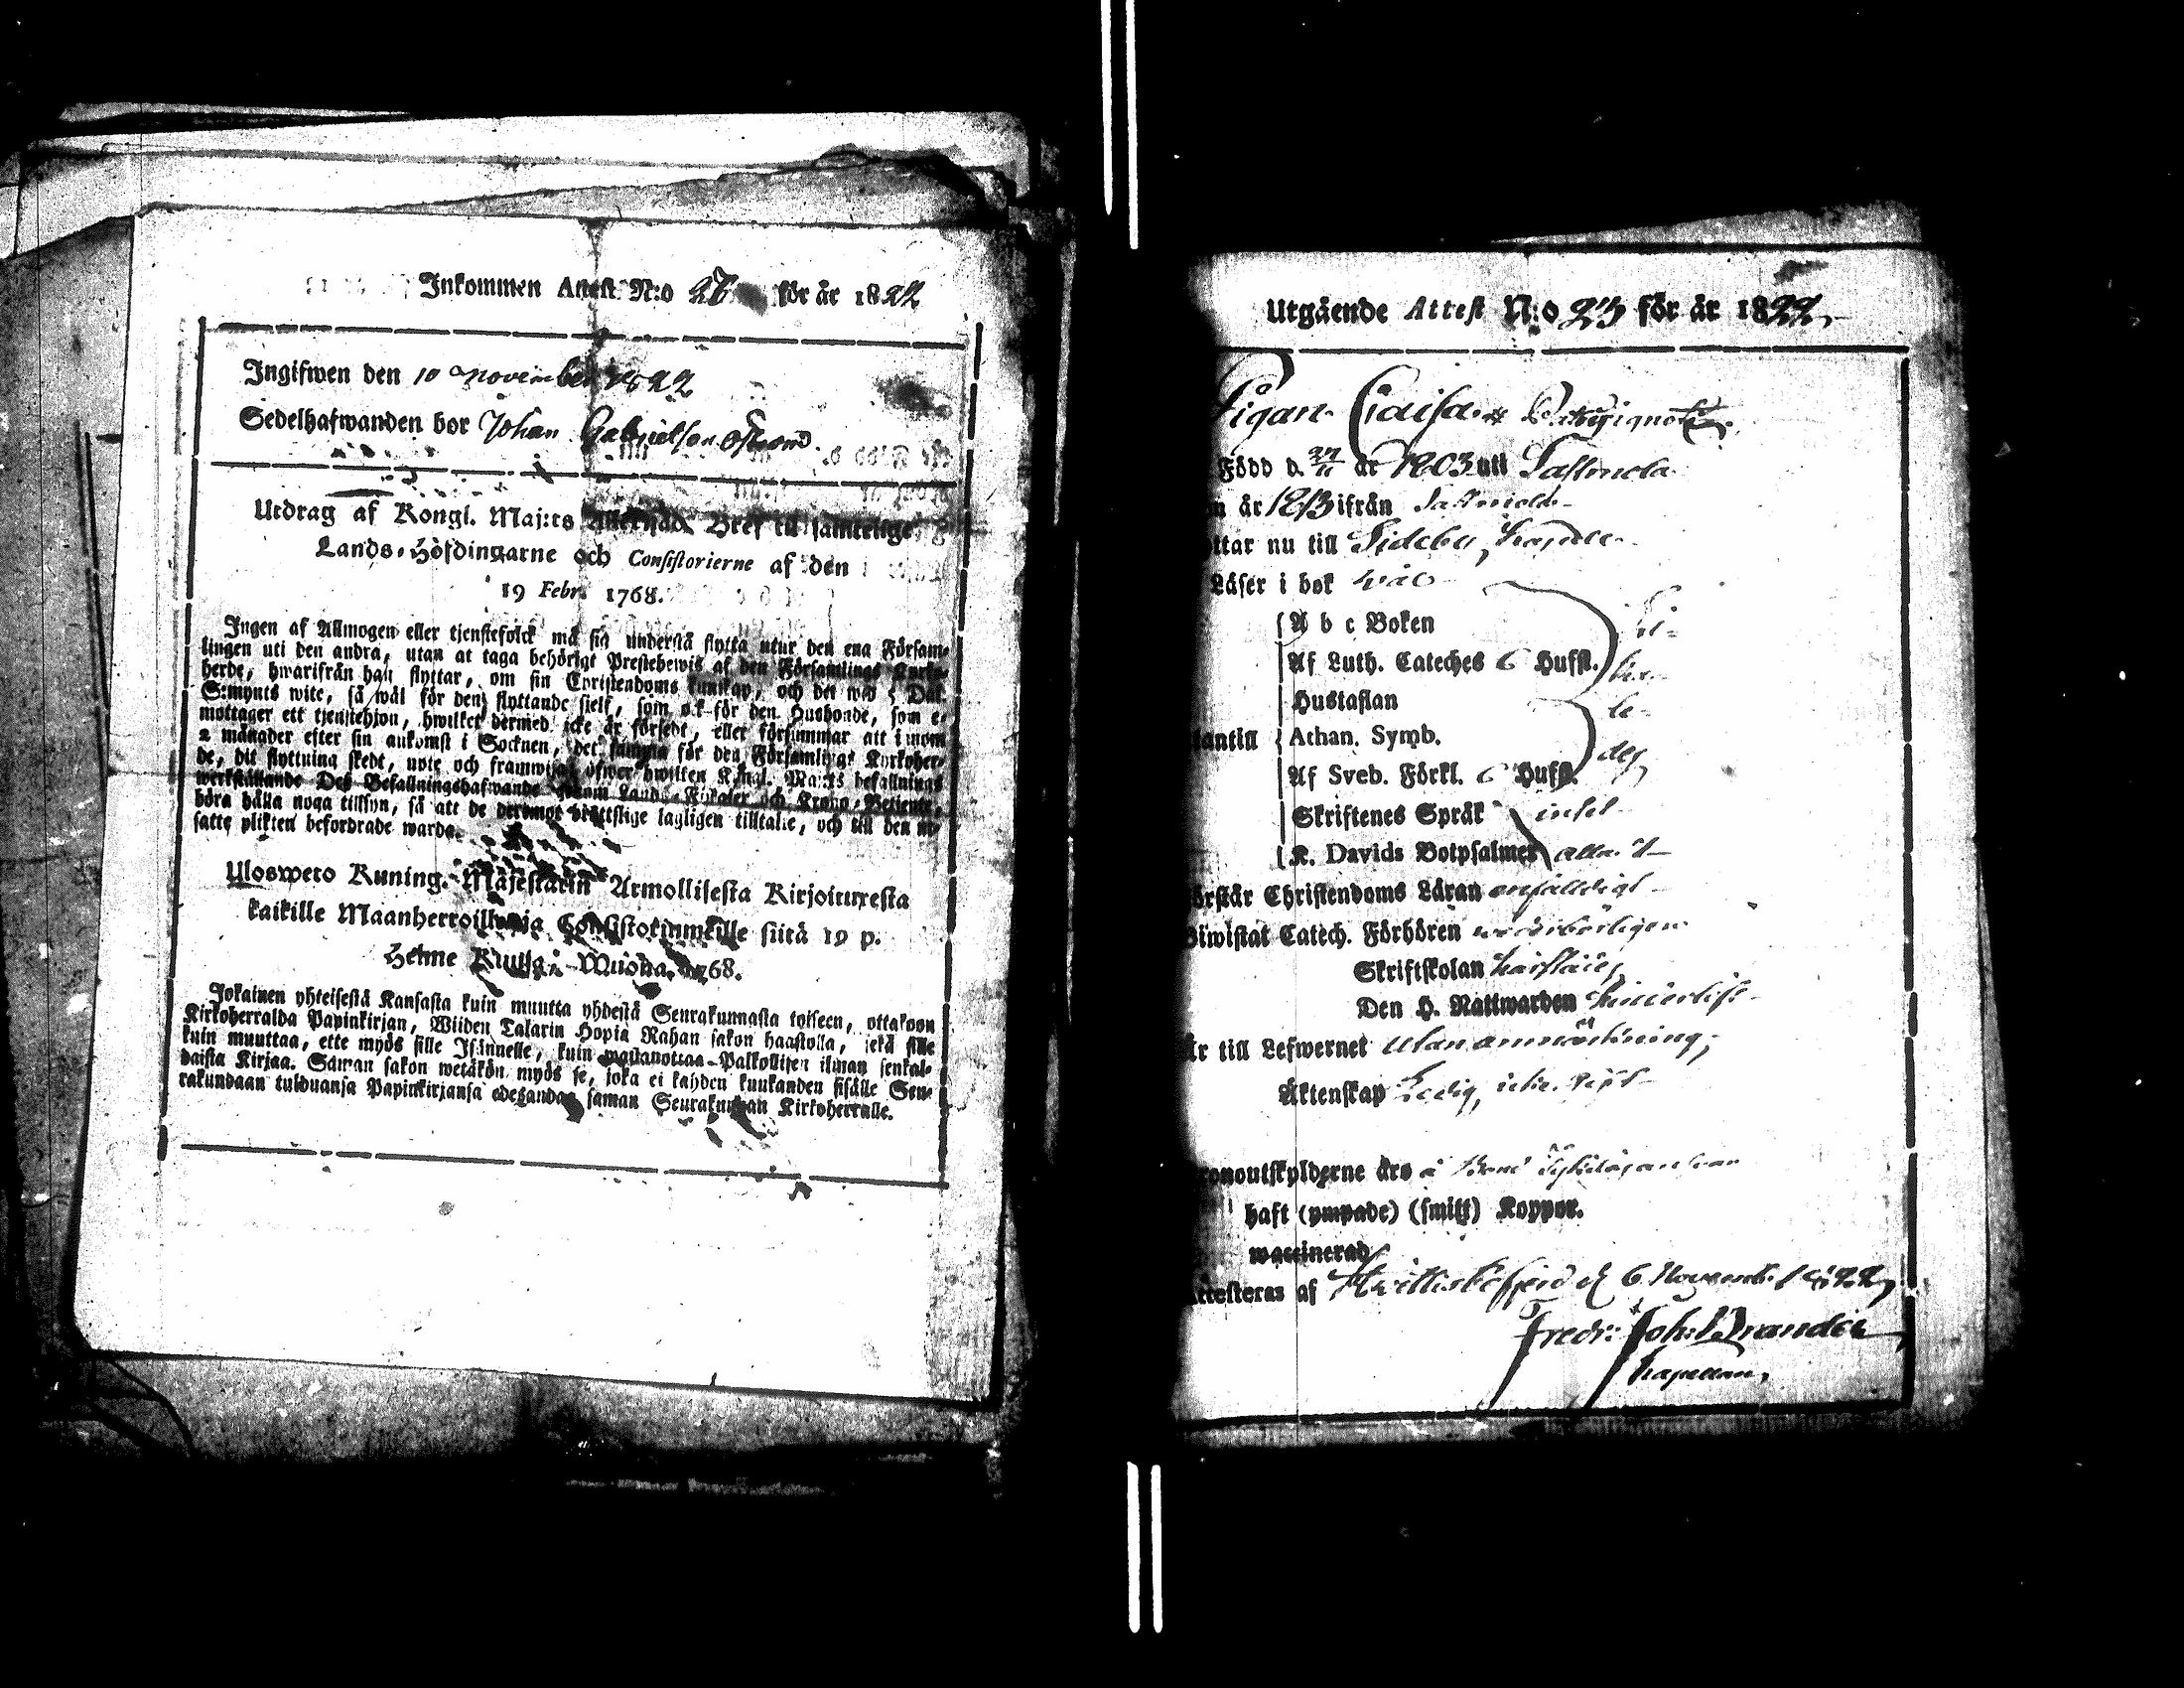 Inkommen Attest N:o 27 för år 1822
Ingifwen den 10 November 1822
Sedelhafwanden bor Johan Gabrielsson
Utdrag af Kongl. Maj:ts Allernåd. Bref til samtelige
Lands-Höfdingarne och Consistorierne af den
19 Febr. 1768.
Ingen af Allmogen eller tjenstefolck må sig understå flytta utur den ena Försam-
lingen uti den andra, utan at taga behörigt Prestebewis af den Församlings Kyrko-
herde, hwarifrån han flyttar, om sin Christendoms kunskap, och det wid 5 Dal.
S:mynts wite, så wäl för den flyttande sjelf, som ock för den Husbonde, som e-
mottager ett tjenstehjon, hwilket dermed icke är försedt, eller försummar att inom
2 månader efter sin ankomst i Socknen, det samma för den Församlings Kyrkoher-
de, dit flyttning skedt, upte och framwisa; öfwer hwilken Kongl. Maj:ts befallnings
werkställande Des Befallningshafwande genom Lands-Fiskaler och Krono-Betjente,
böra hålla noga tillsyn, så att de deremot brottslige lagligen tilltalte, och till den ut-
satte plikten befordrade warda.
Ulosweto Kuning. Majestätin Armollisesta Kirjoituxesta
kaikille Maanherroille ja Consistoriumeille siitä 19 p.
Helme Kuusa Wuonna 1768.
Jokainen yhteisestä Kansasta kuin muutta yhdestä Seurakunnasta toiseen, ottakoon
Kirkoherralda Papinkirjan, Wiiden Talarin Hopia Rahan sakon haastolla, sekä sille
kuin muuttaa, ette myös sille Isännelle, kuin wastanottaa Palkollisen ilman senkal-
daista Kirjaa. Saman sakon wetäkön myös se, joka ei kahden kuukauden sisälle Seu-
rakundaan tulduansa Papinkirjansa edesanda saman Seurakunnan Kirkoherralle.
Utgående Attest N:o 25 för år 1822
Pigan Caisa
Född d. 27/11 år 1803 uti Sastmola
år 1813 ifrån Sastmola
ttar nu till Sideby Capell
Läser i bok wäl
A b c Boken
Af Luth. Cateches 6 Hufst.
Hustaflan
tantill
Athan. Symb.
Af Sveb. Förkl. 6 Hufst.
Skriftenes Språk intet
K. Davids Botpsalmer alla
örstår Christendoms Läran enfaldigt
Biwistat Catech. Förhören
Skriftskolan
Den H. Nattwarden
är till Lefwernet utan anmärkning,
Äktenskap Ledig, icke
onoutskylderne års
haft (ympade) (smitt) Koppor.
waccinerad
ttesteras af d. 6 Novemb. 1822,
Fredr: Joh: Brander
Kapellan.